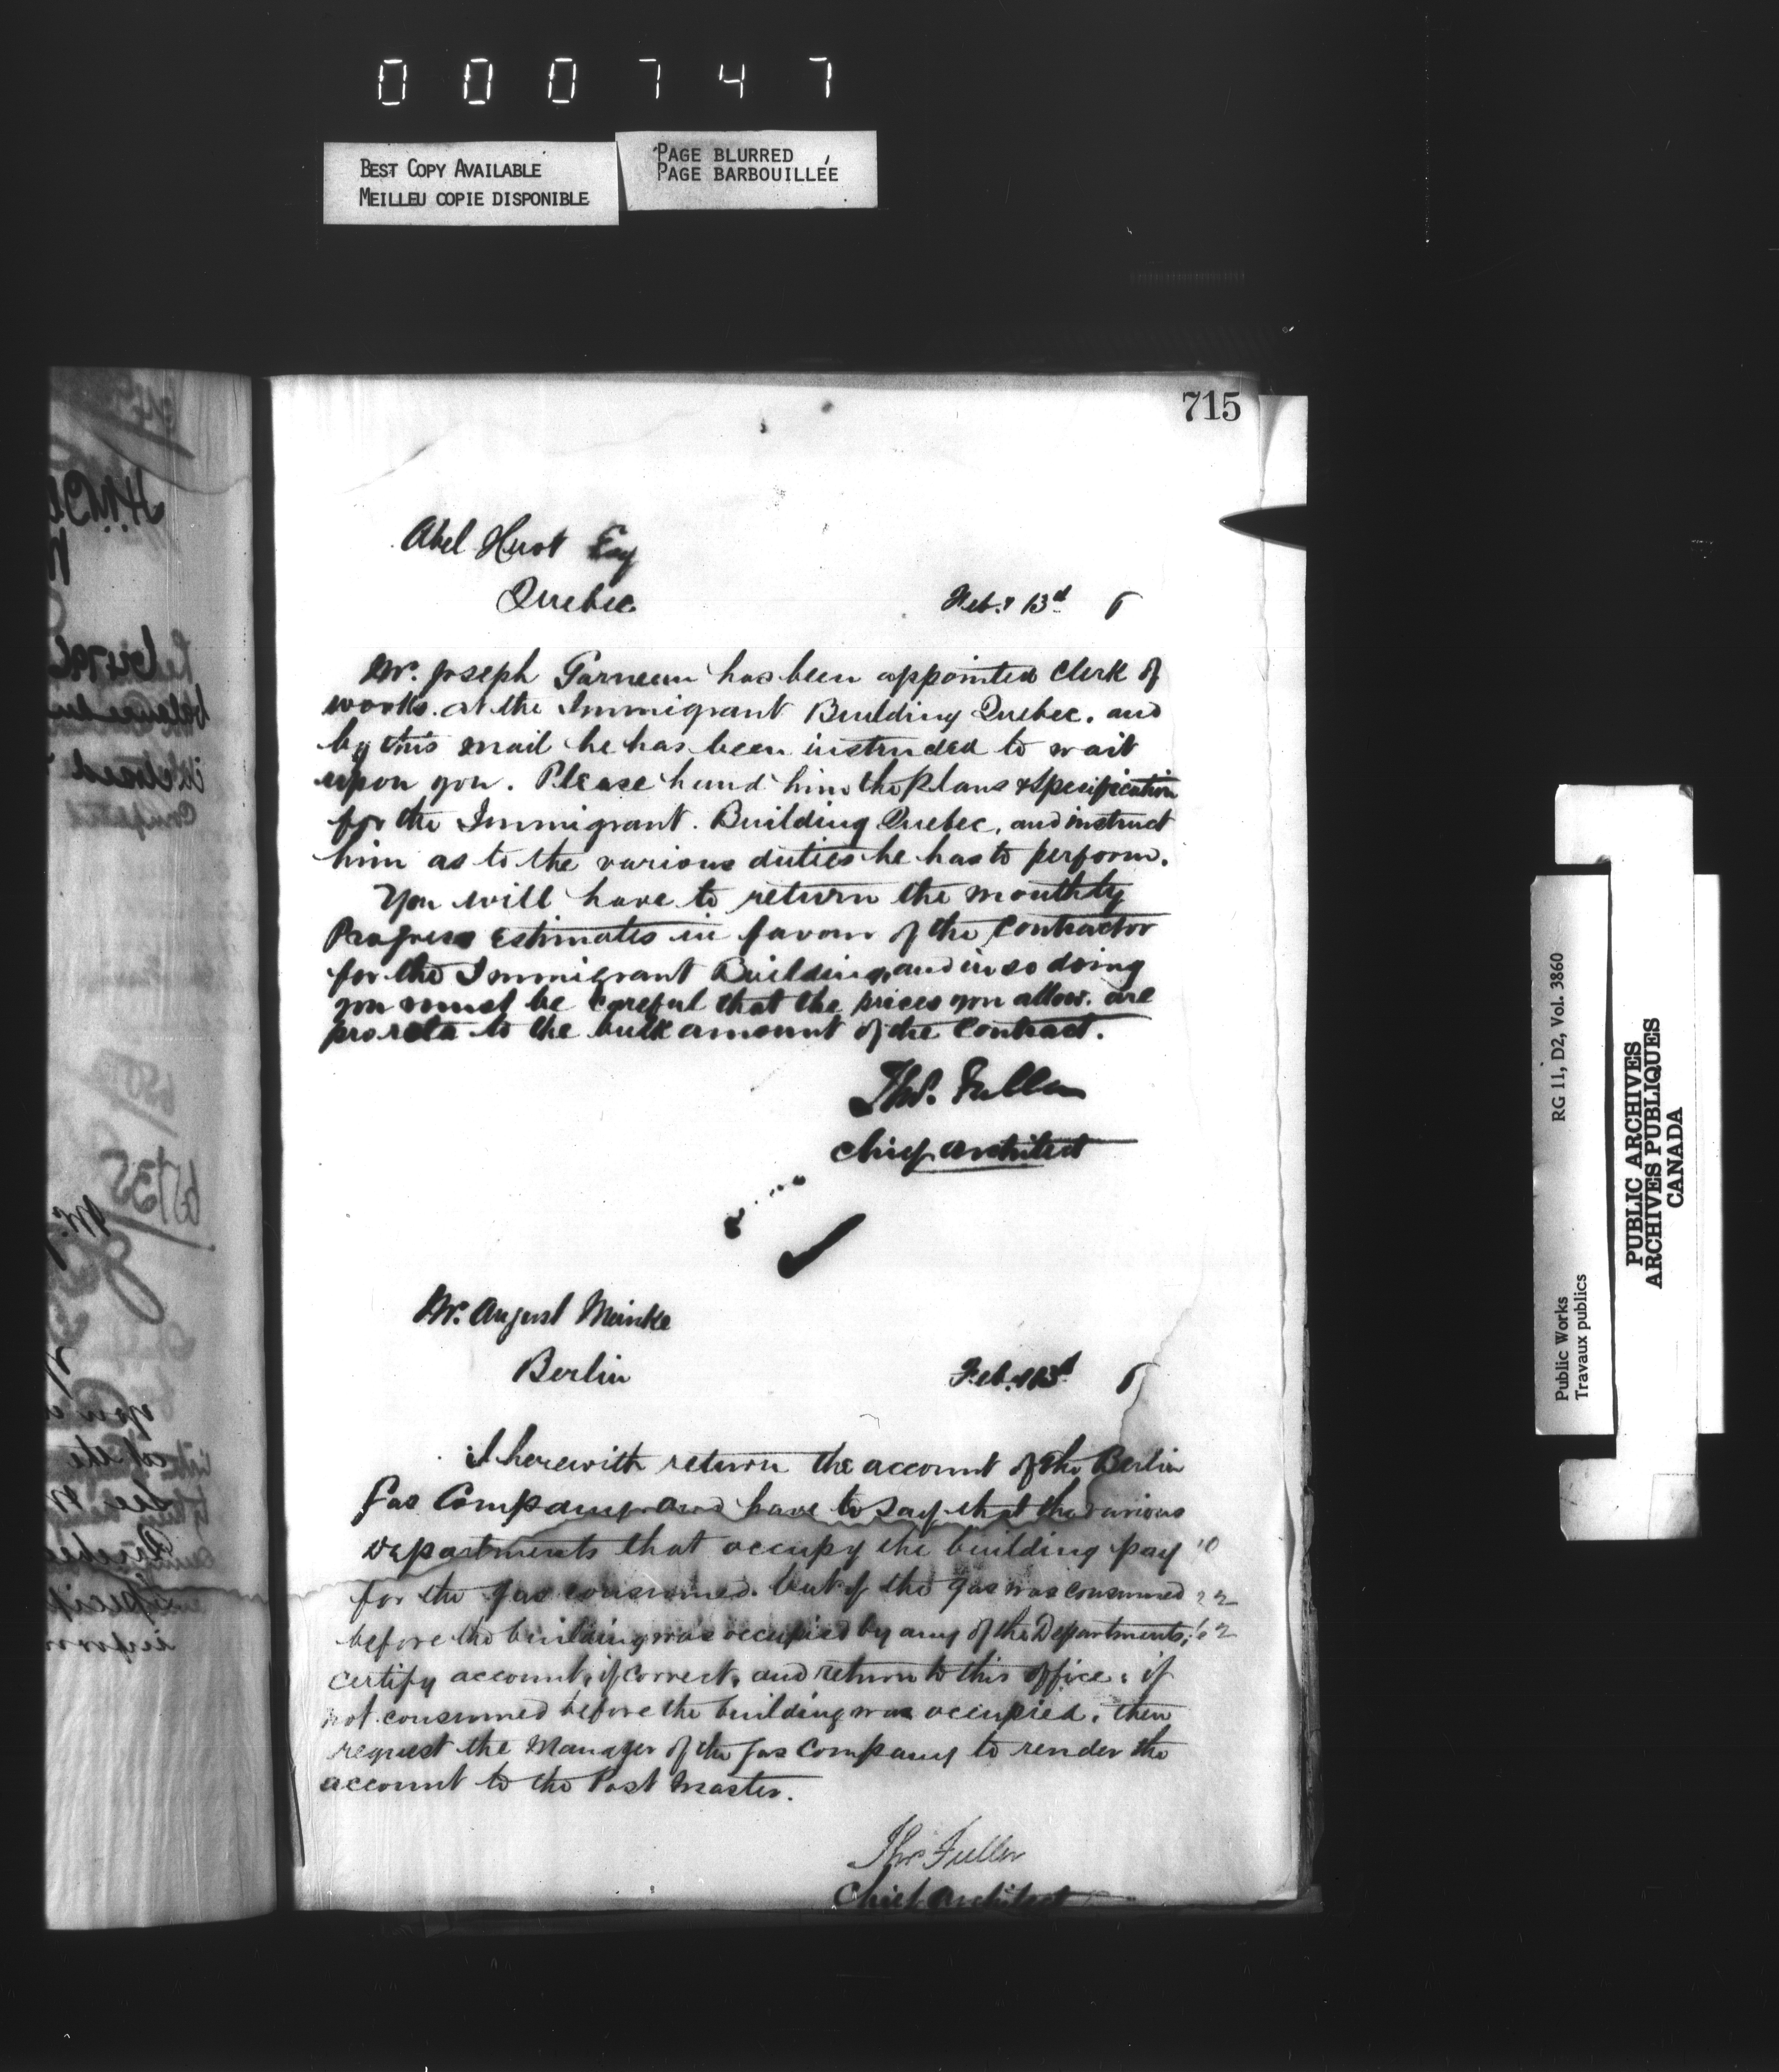 000747
BEST COPY AVAILABLE
MEILLEU COPIE DISPONIBLE
PAGE BLURRED
PAGE BARBOUILLÉE
715
Abel Huot Esq
Quebec
Feby 13th 6
Mr. Joseph Garneau has been appointed Clerk of
works. at the Immigrant Building Quebec. and
by this mail he has been instructed to wait
upon you. Please hand him the Plans & specification
for the Immigrant. Building Quebec, and instruct
him as to the various duties he has to perform.
You will have to return the monthly
Progress Estimates in favour of the Contractor
for the Immigrant Building, and in so doing
you must be careful that the prices you allow. are
pro rata to the bulk amount of the Contract.
Thos. Fuller
Chief Architect
Mr. August Meinke
Berlin
Feby 13th 6
I herewith return the account of the Berlin
Gas Company and have to say that the various
Departments that occupy the building pay
for the gas consumed. but if the gas was consumed
before the building was occupied by any of the Departments,
certify account, if correct, and return to this office; if
not consumed before the building was occupied, then
request the Manager of the Gas Company to render the
account to the Post Master.
Thos Fuller
Chief Architect
Public Works
Travaux publics
RG 11, D2, Vol. 3860
PUBLIC ARCHIVES
ARCHIVES PUBLIQUES
CANADA